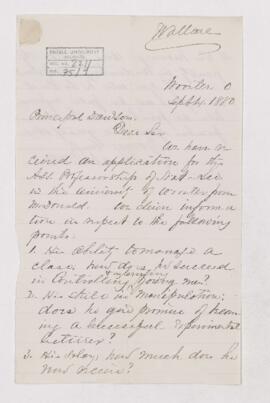 Wallace
McGILL UNIVERSITY
ARCHIVES
ACC. NO. 2211
REF. 35/7
Wooster O
Sept 4. 1880
Principal Dawson,
Dear Sir
We have re
ceived an application for the
Adj. Professorship of Nat. Sci
in the University of Wooster from
McDonald. We desire informa
tion in respect to the following
points:
1. His ability to manage a
class, how does he succeed
in controlling & interesting young men?
2. His skill in manipulation;
does he give promise of becom
ing a successful experimental
lecturer?
3. His salary, how much does he
now receive?